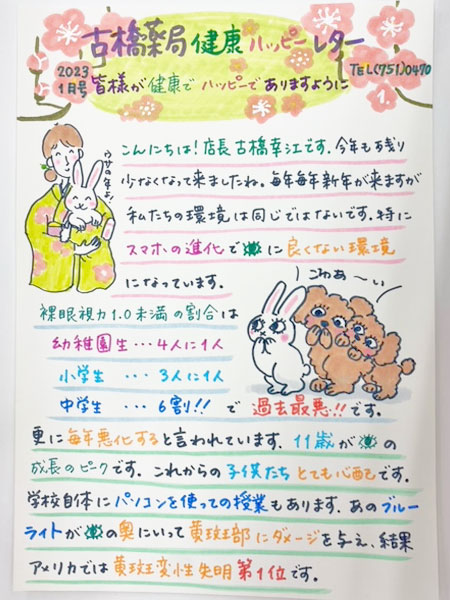 古橋薬局 健康 ハッピー レター
2023
1月号
皆様が健康で ハッピーで ありますように
TEL(751)0470
1.
うさぎ年よ!
こんにちは!店長 古橋幸江です。今年も残り
少なくなって来ましたね。毎年毎年新年が来ますが
私たちの環境は同じではないです。特に
スマホの進化で に良くない環境
になっています。
こわぁ〜い
裸眼視力1.0未満の割合は
幼稚園生 ・・・4人に1人
小学生 ・・・3人に1人
中学生 ・・・6割!! で 過去最悪!!です。
更に毎年悪化すると言われています。11歳が の
成長のピークです。これからの子供たち とても心配です。
学校自体にパソコンを使っての授業もあります。あのブルー
ライトが の奥にいって黄斑部にダメージを与え、結果
アメリカでは黄斑変性失明 第1位です。